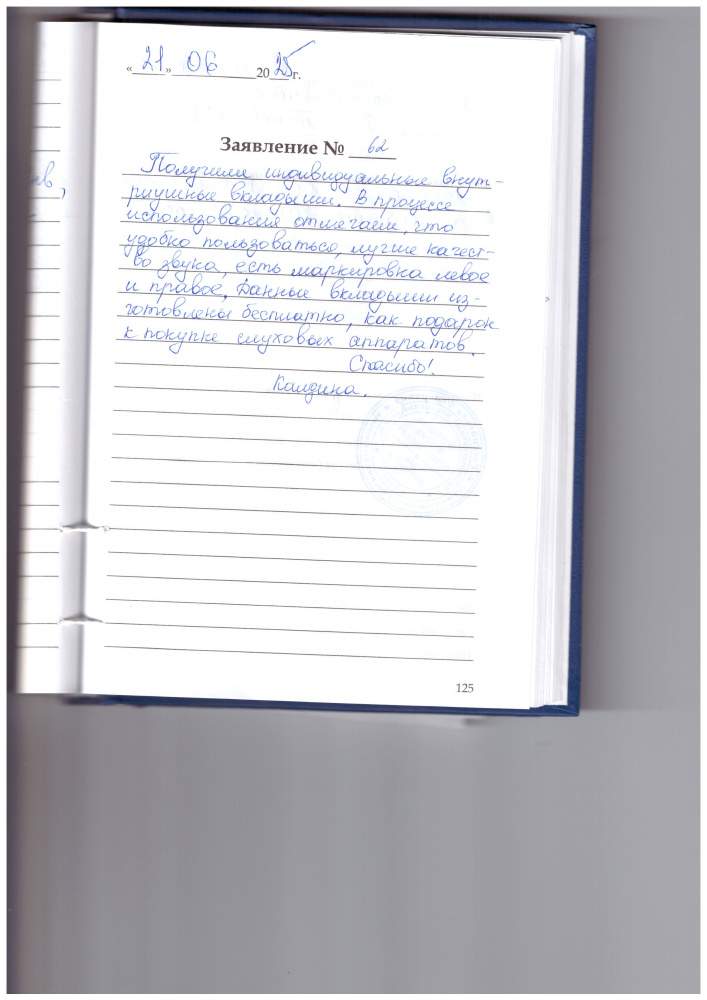 «21» 06 2025 г.
Заявление № 62
Получили индивидуальные внут-
риушные вкладыши. В процессе
использования отмечаем, что
удобно пользоваться, лучше качест-
во звука, есть маркировка левое
и правое. Данные вкладыши из-
готовлены бесплатно, как подарок
к покупке слуховых аппаратов.
Спасибо!
Калдина.
125